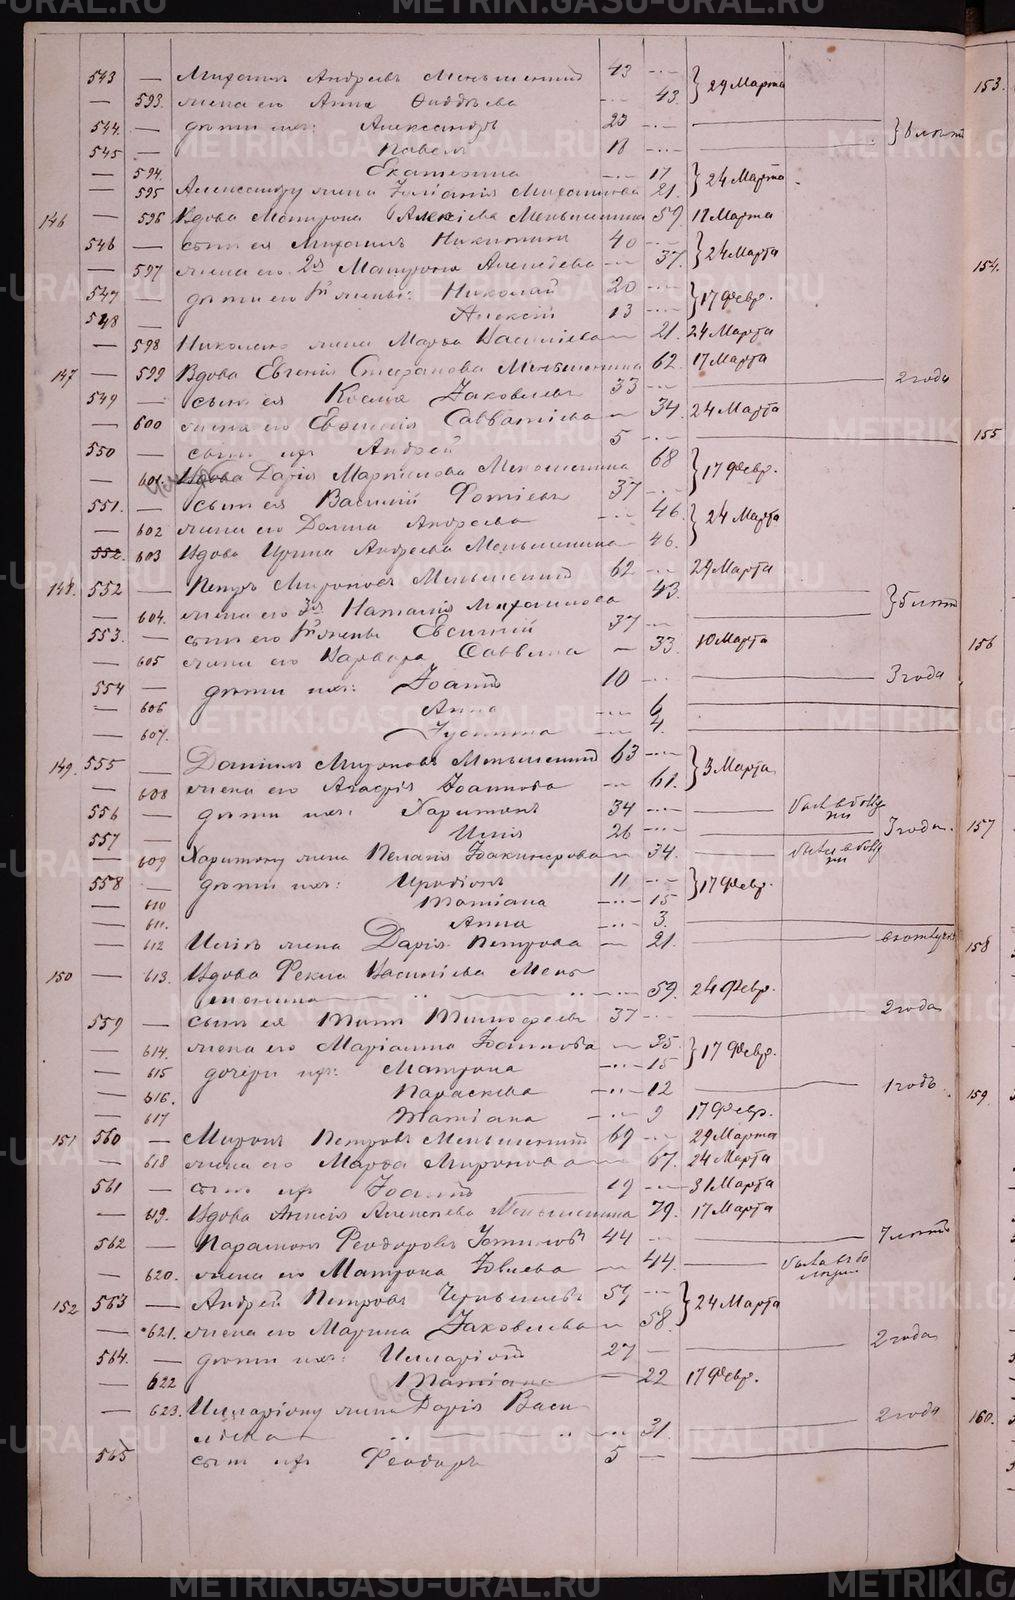 543 — Михаилъ Андреевъ Меньшенинъ 43 — } 24 Марта
— 593. жена его Анна — 43.
544. — дѣти ихъ: Александръ 23 —
545 — Павелъ 18 —
— 594. Екатерина — 17 } 24 Марта
— 595 Александру жена Іулианія Михаилова 21.
146 — 596 Вдова Матрона Алексіева Меньшенина 59. 17 Марта
546 — сынъ ея Михаилъ Никитинъ 40 — } 24 Марта
— 597 жена его 2я Матрона — 37.
547 — дѣти его 1й жены: Николай 20 — } 17 Февр.
548 — Алексій 13 —
— 598 Николаю жена Марѳа Василіева — 21. 24 Марта
147 — 599 Вдова Евгенія Стефанова Меньшенина 62. 17 Марта
549 — сынъ ея Косма Іаковлевъ 33 — 2 года
— 600 жена его Евѳимія Савватіева — 34. 24 Марта
550 — сынъ ихъ Андрей 5 —
— 601. Вдова Дарія Меньшенина 68 } 17 Февр.
551. — сынъ ея Василій Фотіевъ 37 —
— 602 жена его Домна Андреева — 46. } 24 Марта
552. 603 Вдова Ирина Андреева Меньшенина — 46.
148. 552 — Петръ Мироновъ Меньшенинъ 62 — 24 Марта
— 604. жена его 3я Наталія Михаилова 43. } 5 лѣтъ
553. — сынъ его 1й жены Евсигній 37 —
— 605 жена его Варвара Саввина — 33. 10 Марта
554 — дѣти ихъ: Іоаннъ 10 — 3 года
— 606 Анна — 6
— 607. Іустина — 4.
149. 555 — Даніилъ Мироновъ Меньшенинъ 63 — } 3 Марта
— 608 жена его Агаѳія Іоаннова — 61.
556 — дѣти ихъ: Харитонъ 34 —
557 — Илія 26 — 3 года.
— 609 Харитону жена Пелагія — 34.
558 — дѣти ихъ: Иродіонъ 11 — } 17 Февр.
— 610 Татіана — 15
— 611. Анна — 3.
— 612 Иліѣ жена Дарія Петрова — 21.
150 — 613. Вдова Ѳекла Василіева Мень
шенина — 59. 24 Февр.
559 — сынъ ея Титъ Тимоѳеевъ 37 — 2 года
— 614. жена его Маріамна Іоаннова — 35. } 17 Февр.
— 615 дочери ихъ: Матрона — 15
— 616. Параскева — 12 1 годъ.
— 617 Татіана — 9 17 Февр.
151 560 — Миронъ Петровъ Меньшенинъ 69 — 29 Марта
— 618 жена его Марѳа Миронова — 67. 24 Марта
561 — сынъ ихъ Іоаннъ 19 — 31 Марта
— 619. Вдова Анисія Алексіева Меньшенина 79. 17 Марта
562 — Парамонъ Ѳеодоровъ 44 — 7 лѣтъ
— 620. жена его Матрона Іовлева — 44.
152 563 — Андрей Петровъ 59 — } 24 Марта
— 621. жена его Марина Іаковлева — 58.
564. — дѣти ихъ: Иларіонъ 27 — 2 года
— 622 Татіана — 22 17 Февр.
— 623. Иларіону жена Дарія Васи
ліева — 21. 2 года
565 сынъ ихъ Ѳеодоръ 5 —
153.
154.
155
156
157
158
159
160.
METRIKI.GASO-URAL.RU